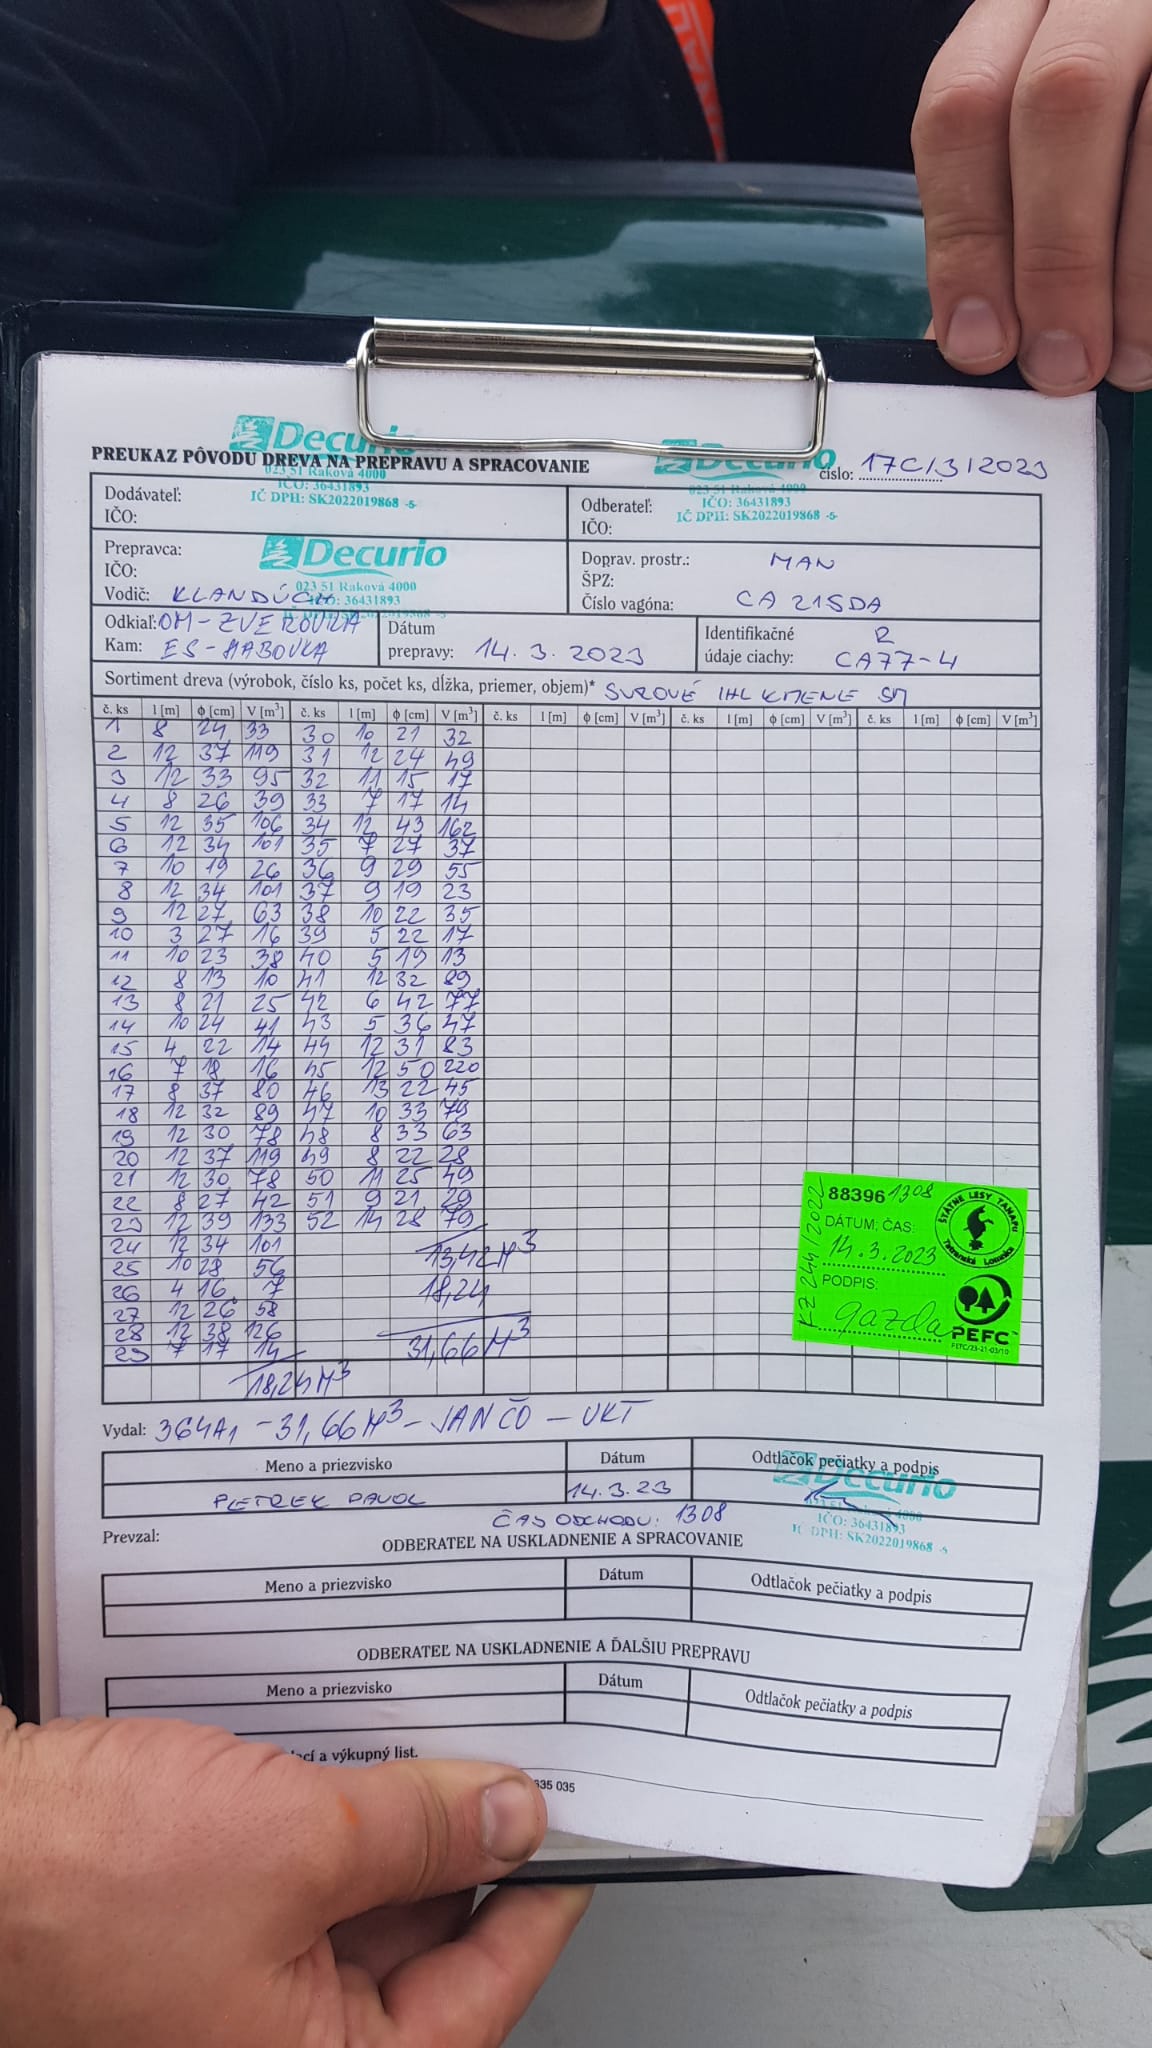 Decurio
Decurio
PREUKAZ PÔVODU DREVA NA PREPRAVU A SPRACOVANIE
číslo: 17C/3/2023
023 51 Raková 4000
IČO: 36431893
IČ DPH: SK2022019868 -5-
023 51 Raková 4000
IČO: 36431893
IČ DPH: SK2022019868 -5-
Dodávateľ:
IČO:
Odberateľ:
IČO:
Prepravca:
IČO:
Vodič: KLANDÚCH
Decurio
023 51 Raková 4000
IČO: 36431893
Doprav. prostr.: MAN
ŠPZ:
Číslo vagóna: CA 215DA
Odkiaľ: OM-ZVEROVKA
Kam: ES-HABOVKA
Dátum
prepravy: 14.3.2023
Identifikačné R
údaje ciachy: CA77-4
Sortiment dreva (výrobok, číslo ks, počet ks, dĺžka, priemer, objem)* SUROVÉ IHL KMENE SM
č. ks l [m] ϕ [cm] V [m³] č. ks l [m] ϕ [cm] V [m³] č. ks l [m] ϕ [cm] V [m³] č. ks l [m] ϕ [cm] V [m³] č. ks l [m] ϕ [cm] V [m³]
1 8 24 33 30 10 21 32
2 12 37 119 31 12 24 49
3 12 33 95 32 11 15 17
4 8 26 39 33 7 17 14
5 12 35 106 34 12 43 162
6 12 34 101 35 7 27 37
7 10 19 26 36 9 29 55
8 12 34 101 37 9 19 23
9 12 27 63 38 10 22 35
10 3 27 16 39 5 22 17
11 10 23 38 40 5 19 13
12 8 13 10 41 12 32 89
13 8 21 25 42 6 42 77
14 10 24 41 43 5 36 47
15 4 22 14 44 12 31 83
16 7 18 16 45 12 50 220
17 8 37 80 46 13 22 45
18 12 32 89 47 10 33 79
19 12 30 78 48 8 33 63
20 12 37 119 49 8 22 28
21 12 30 78 50 11 25 49
22 8 27 42 51 9 21 29
23 12 39 133 52 14 28 79
24 12 34 101 13,42 M³
25 10 28 56
26 4 16 7 18,24
27 12 26 58
28 12 38 126
29 7 17 14 31,66 M³
18,24 M³
88396 1308
DÁTUM; ČAS:
14.3.2023
PODPIS:
gazda
KZ 244/2022
ŠTÁTNE LESY TANAPU
Tatranská Lomnica
PEFC™
PEFC/23-21-03/10
Vydal: 364A1 - 31,66 M³ - JANČO - VKT
Meno a priezvisko Dátum Odtlačok pečiatky a podpis
PETREK PAVOL 14.3.23
Decurio
023 51 Raková 4000
IČO: 36431893
IČ DPH: SK2022019868 -5
ČAS ODCHODU: 1308
Prevzal:
ODBERATEĽ NA USKLADNENIE A SPRACOVANIE
Meno a priezvisko Dátum Odtlačok pečiatky a podpis
ODBERATEĽ NA USKLADNENIE A ĎALŠIU PREPRAVU
Meno a priezvisko Dátum Odtlačok pečiatky a podpis
a výkupný list.
335 035